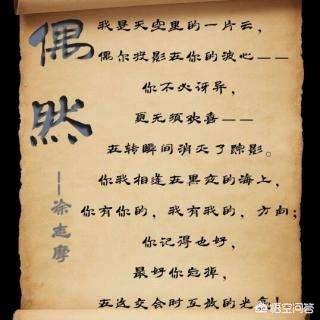 偶然
——徐志摩
我是天空里的一片云，
偶尔投影在你的波心——
你不必讶异，
更无须欢喜——
在转瞬间消灭了踪影。
你我相逢在黑夜的海上，
你有你的，我有我的，方向；
你记得也好，
最好你忘掉，
在这交会时互放的光亮！
悟空问答